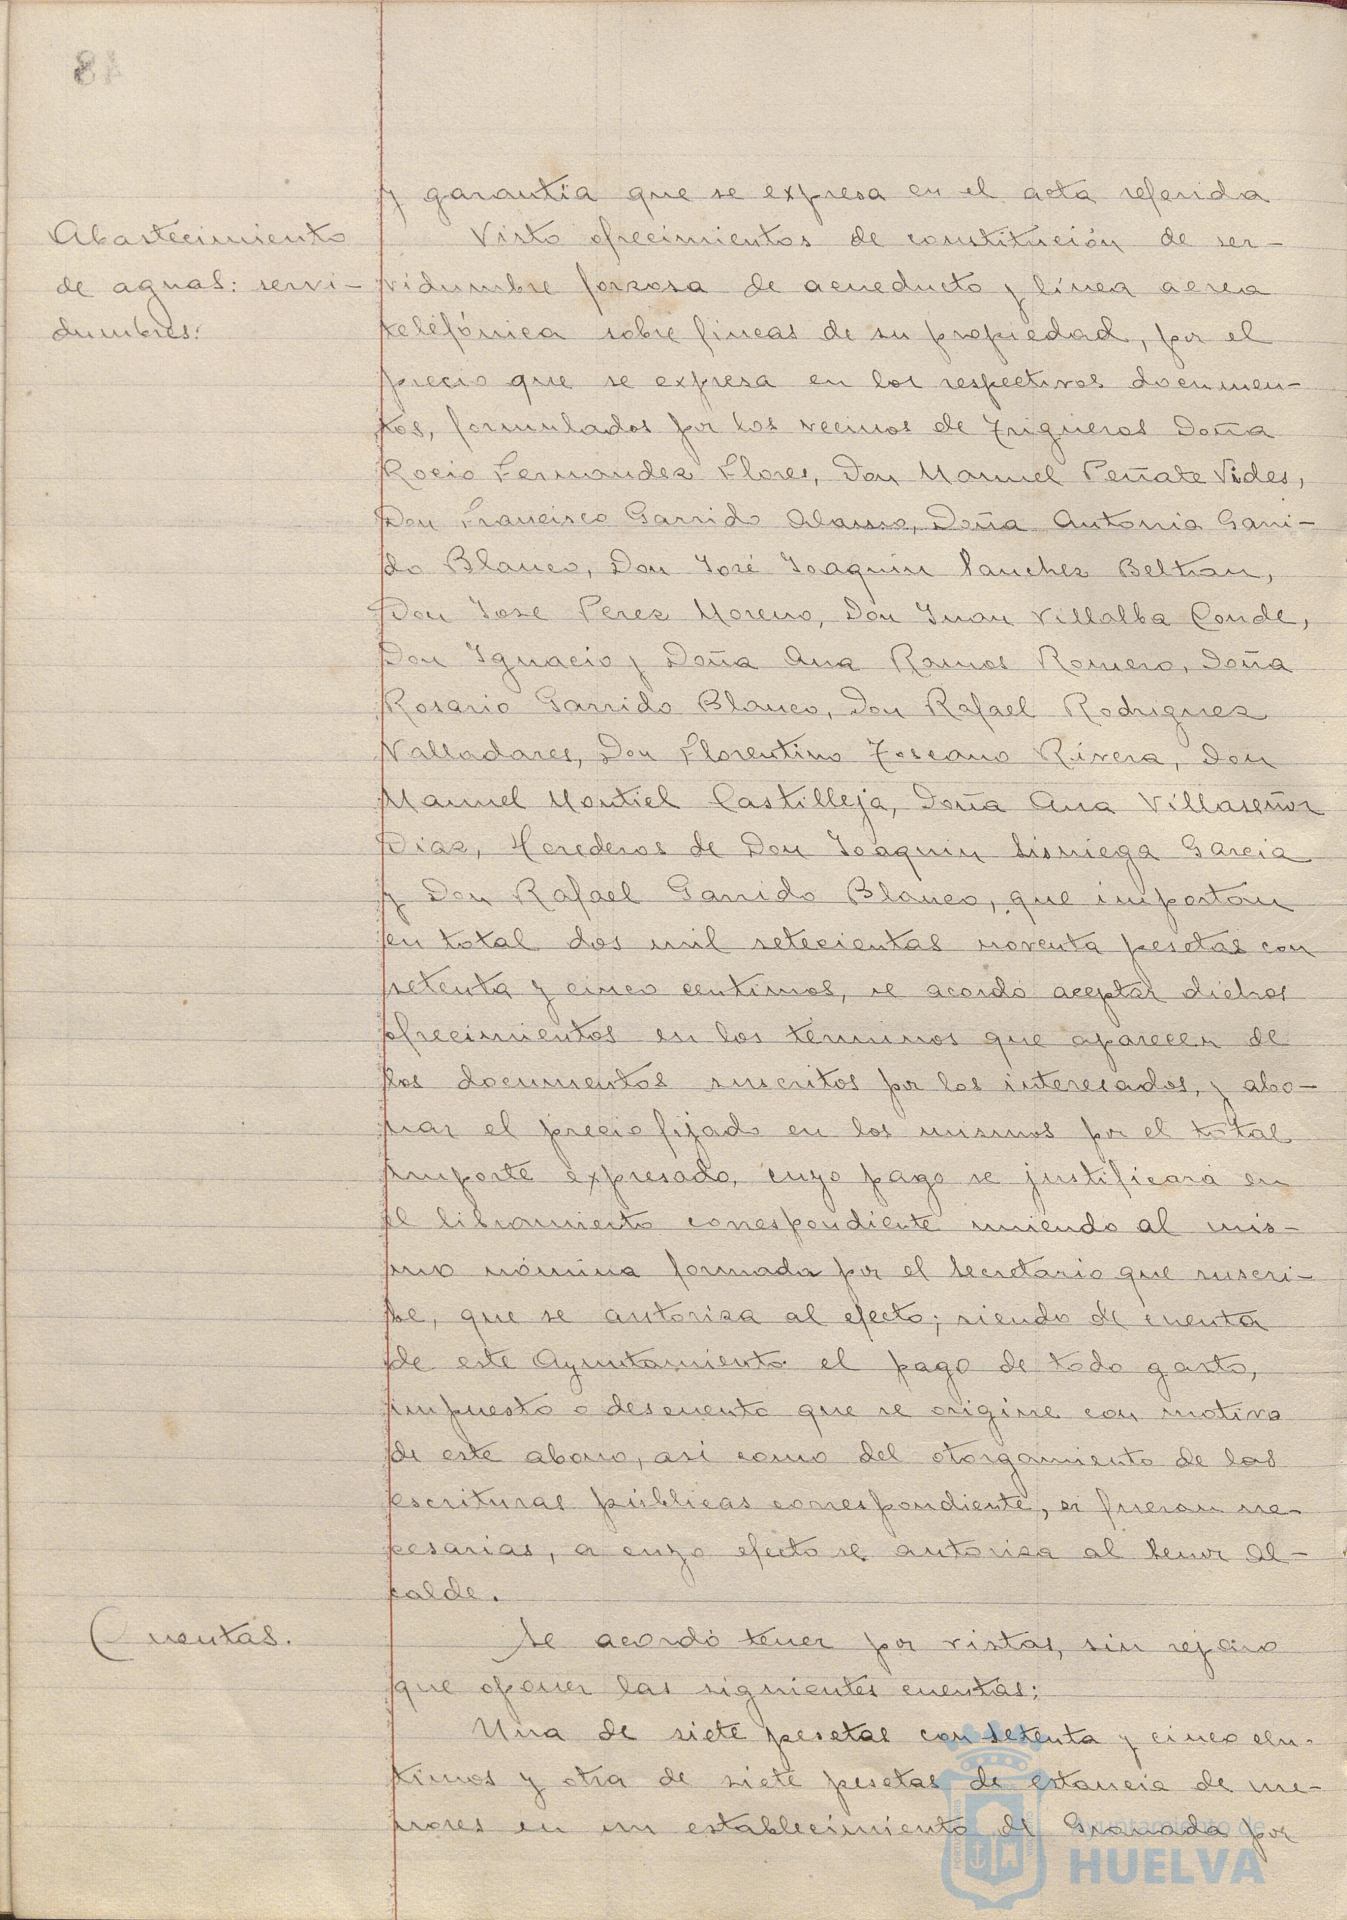 48
y garantía que se expresa en el acta referida
Abastecimiento
de aguas: servi-
dumbres:
Visto ofrecimientos de constitución de ser-
vidumbre forzosa de acueducto y línea aerea
telefónica sobre fincas de su propiedad, por el
precio que se expresa en los respectivos documen-
tos, formulados por los vecinos de Trigueros Doña
Rocio Fernandez Flores, Don Manuel Peñate Vides,
Don Francisco Garrido Alamo, Doña Antonia Garri-
do Blanco, Don José Joaquin Sanchez Beltran,
Don Jose Perez Moreno, Don Juan Villalba Conde,
Don Ignacio y Doña Ana Ramos Romero, Doña
Rosario Garrido Blanco, Don Rafael Rodriguez
Valladares, Don Florentino Toscano Rivera, Don
Manuel Montiel Castilleja, Doña Ana Villaseñor
Diaz, Herederos de Don Joaquin Sisniega Garcia
y Don Rafael Garrido Blanco, que importan
en total dos mil setecientas noventa pesetas con
setenta y cinco centimos, se acordó aceptar dichos
ofrecimientos en los términos que aparecen de
los documentos suscritos por los interesados, y abo-
nar el precio fijado en los mismos por el total
importe expresado, cuyo pago se justificará en
el libramiento correspondiente uniendo al mis-
mo nómina formada por el Secretario que suscri-
be, que se autoriza al efecto; siendo de cuenta
de este Ayuntamiento el pago de todo gasto,
impuesto o descuento que se origine con motivo
de este abono, así como del otorgamiento de las
escrituras públicas correspondiente, si fueran ne-
cesarias, a cuyo efecto se autoriza al Señor Al-
calde.
Cuentas.
Se acordó tener por vistas, sin reparo
que oponer las siguientes cuentas:
Una de siete pesetas con setenta y cinco cén-
timos y otra de siete pesetas de estancia de me-
nores en un establecimiento de Granada por
Ayuntamiento de
HUELVA